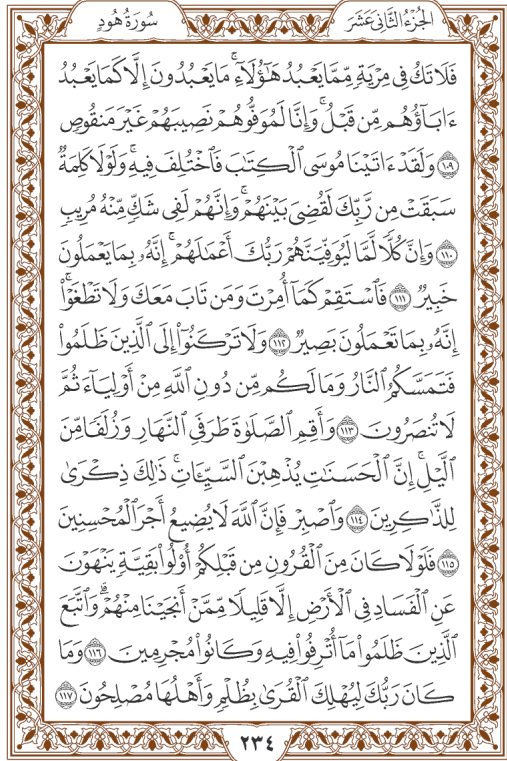 الجزء الثاني عشر
سورة هود
فَلَا تَكُ فِي مِرْيَةٍ مِّمَّا يَعْبُدُ هَٰٓؤُلَآءِۚ مَا يَعْبُدُونَ إِلَّا كَمَا يَعْبُدُ
ءَابَآؤُهُم مِّن قَبْلُۚ وَإِنَّا لَمُوَفُّوهُمْ نَصِيبَهُمْ غَيْرَ مَنقُوصٍ
١٠٩ وَلَقَدْ ءَاتَيْنَا مُوسَى ٱلْكِتَٰبَ فَٱخْتُلِفَ فِيهِۚ وَلَوْلَا كَلِمَةٌ
سَبَقَتْ مِن رَّبِّكَ لَقُضِيَ بَيْنَهُمْۚ وَإِنَّهُمْ لَفِي شَكٍّ مِّنْهُ مُرِيبٍ
١١٠ وَإِنَّ كُلًّا لَّمَّا لَيُوَفِّيَنَّهُمْ رَبُّكَ أَعْمَٰلَهُمْۚ إِنَّهُۥ بِمَا يَعْمَلُونَ
خَبِيرٌ ١١١ فَٱسْتَقِمْ كَمَآ أُمِرْتَ وَمَن تَابَ مَعَكَ وَلَا تَطْغَوْا۟ۚ
إِنَّهُۥ بِمَا تَعْمَلُونَ بَصِيرٌ ١١٢ وَلَا تَرْكَنُوٓا۟ إِلَى ٱلَّذِينَ ظَلَمُوا۟
فَتَمَسَّكُمُ ٱلنَّارُ وَمَا لَكُم مِّن دُونِ ٱللَّهِ مِنْ أَوْلِيَآءَ ثُمَّ
لَا تُنصَرُونَ ١١٣ وَأَقِمِ ٱلصَّلَوٰةَ طَرَفَيِ ٱلنَّهَارِ وَزُلَفًا مِّنَ
ٱلَّيْلِۚ إِنَّ ٱلْحَسَنَٰتِ يُذْهِبْنَ ٱلسَّيِّـَٔاتِۚ ذَٰلِكَ ذِكْرَىٰ
لِلذَّٰكِرِينَ ١١٤ وَٱصْبِرْ فَإِنَّ ٱللَّهَ لَا يُضِيعُ أَجْرَ ٱلْمُحْسِنِينَ
١١٥ فَلَوْلَا كَانَ مِنَ ٱلْقُرُونِ مِن قَبْلِكُمْ أُو۟لُوا۟ بَقِيَّةٍ يَنْهَوْنَ
عَنِ ٱلْفَسَادِ فِي ٱلْأَرْضِ إِلَّا قَلِيلًا مِّمَّنْ أَنجَيْنَا مِنْهُمْۗ وَٱتَّبَعَ
ٱلَّذِينَ ظَلَمُوا۟ مَآ أُتْرِفُوا۟ فِيهِ وَكَانُوا۟ مُجْرِمِينَ ١١٦ وَمَا
كَانَ رَبُّكَ لِيُهْلِكَ ٱلْقُرَىٰ بِظُلْمٍ وَأَهْلُهَا مُصْلِحُونَ ١١٧
٢٣٤